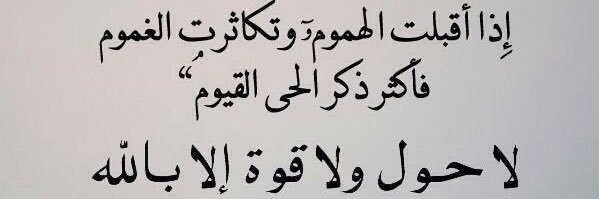 إِذا أقبلت الهموم وتكاثرت الغموم
فأكثر ذكر الحى القيوم“
لا حول ولا قوة إلا بالله